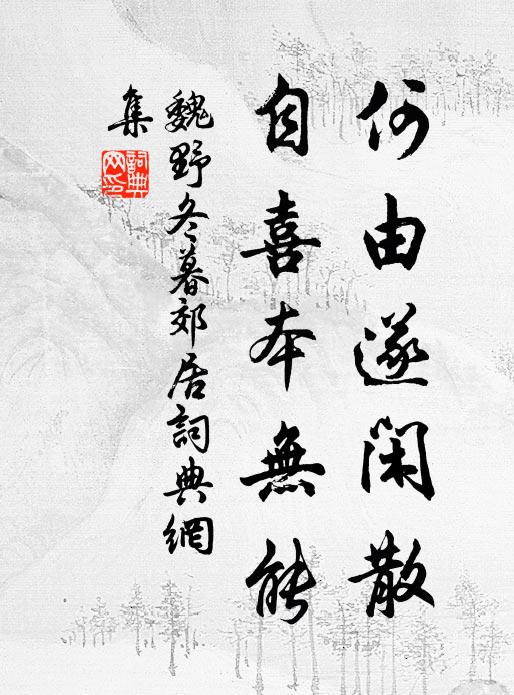 何由遂閑散
自喜本無能
魏野冬暮郊居詞典網
集
詞典網印